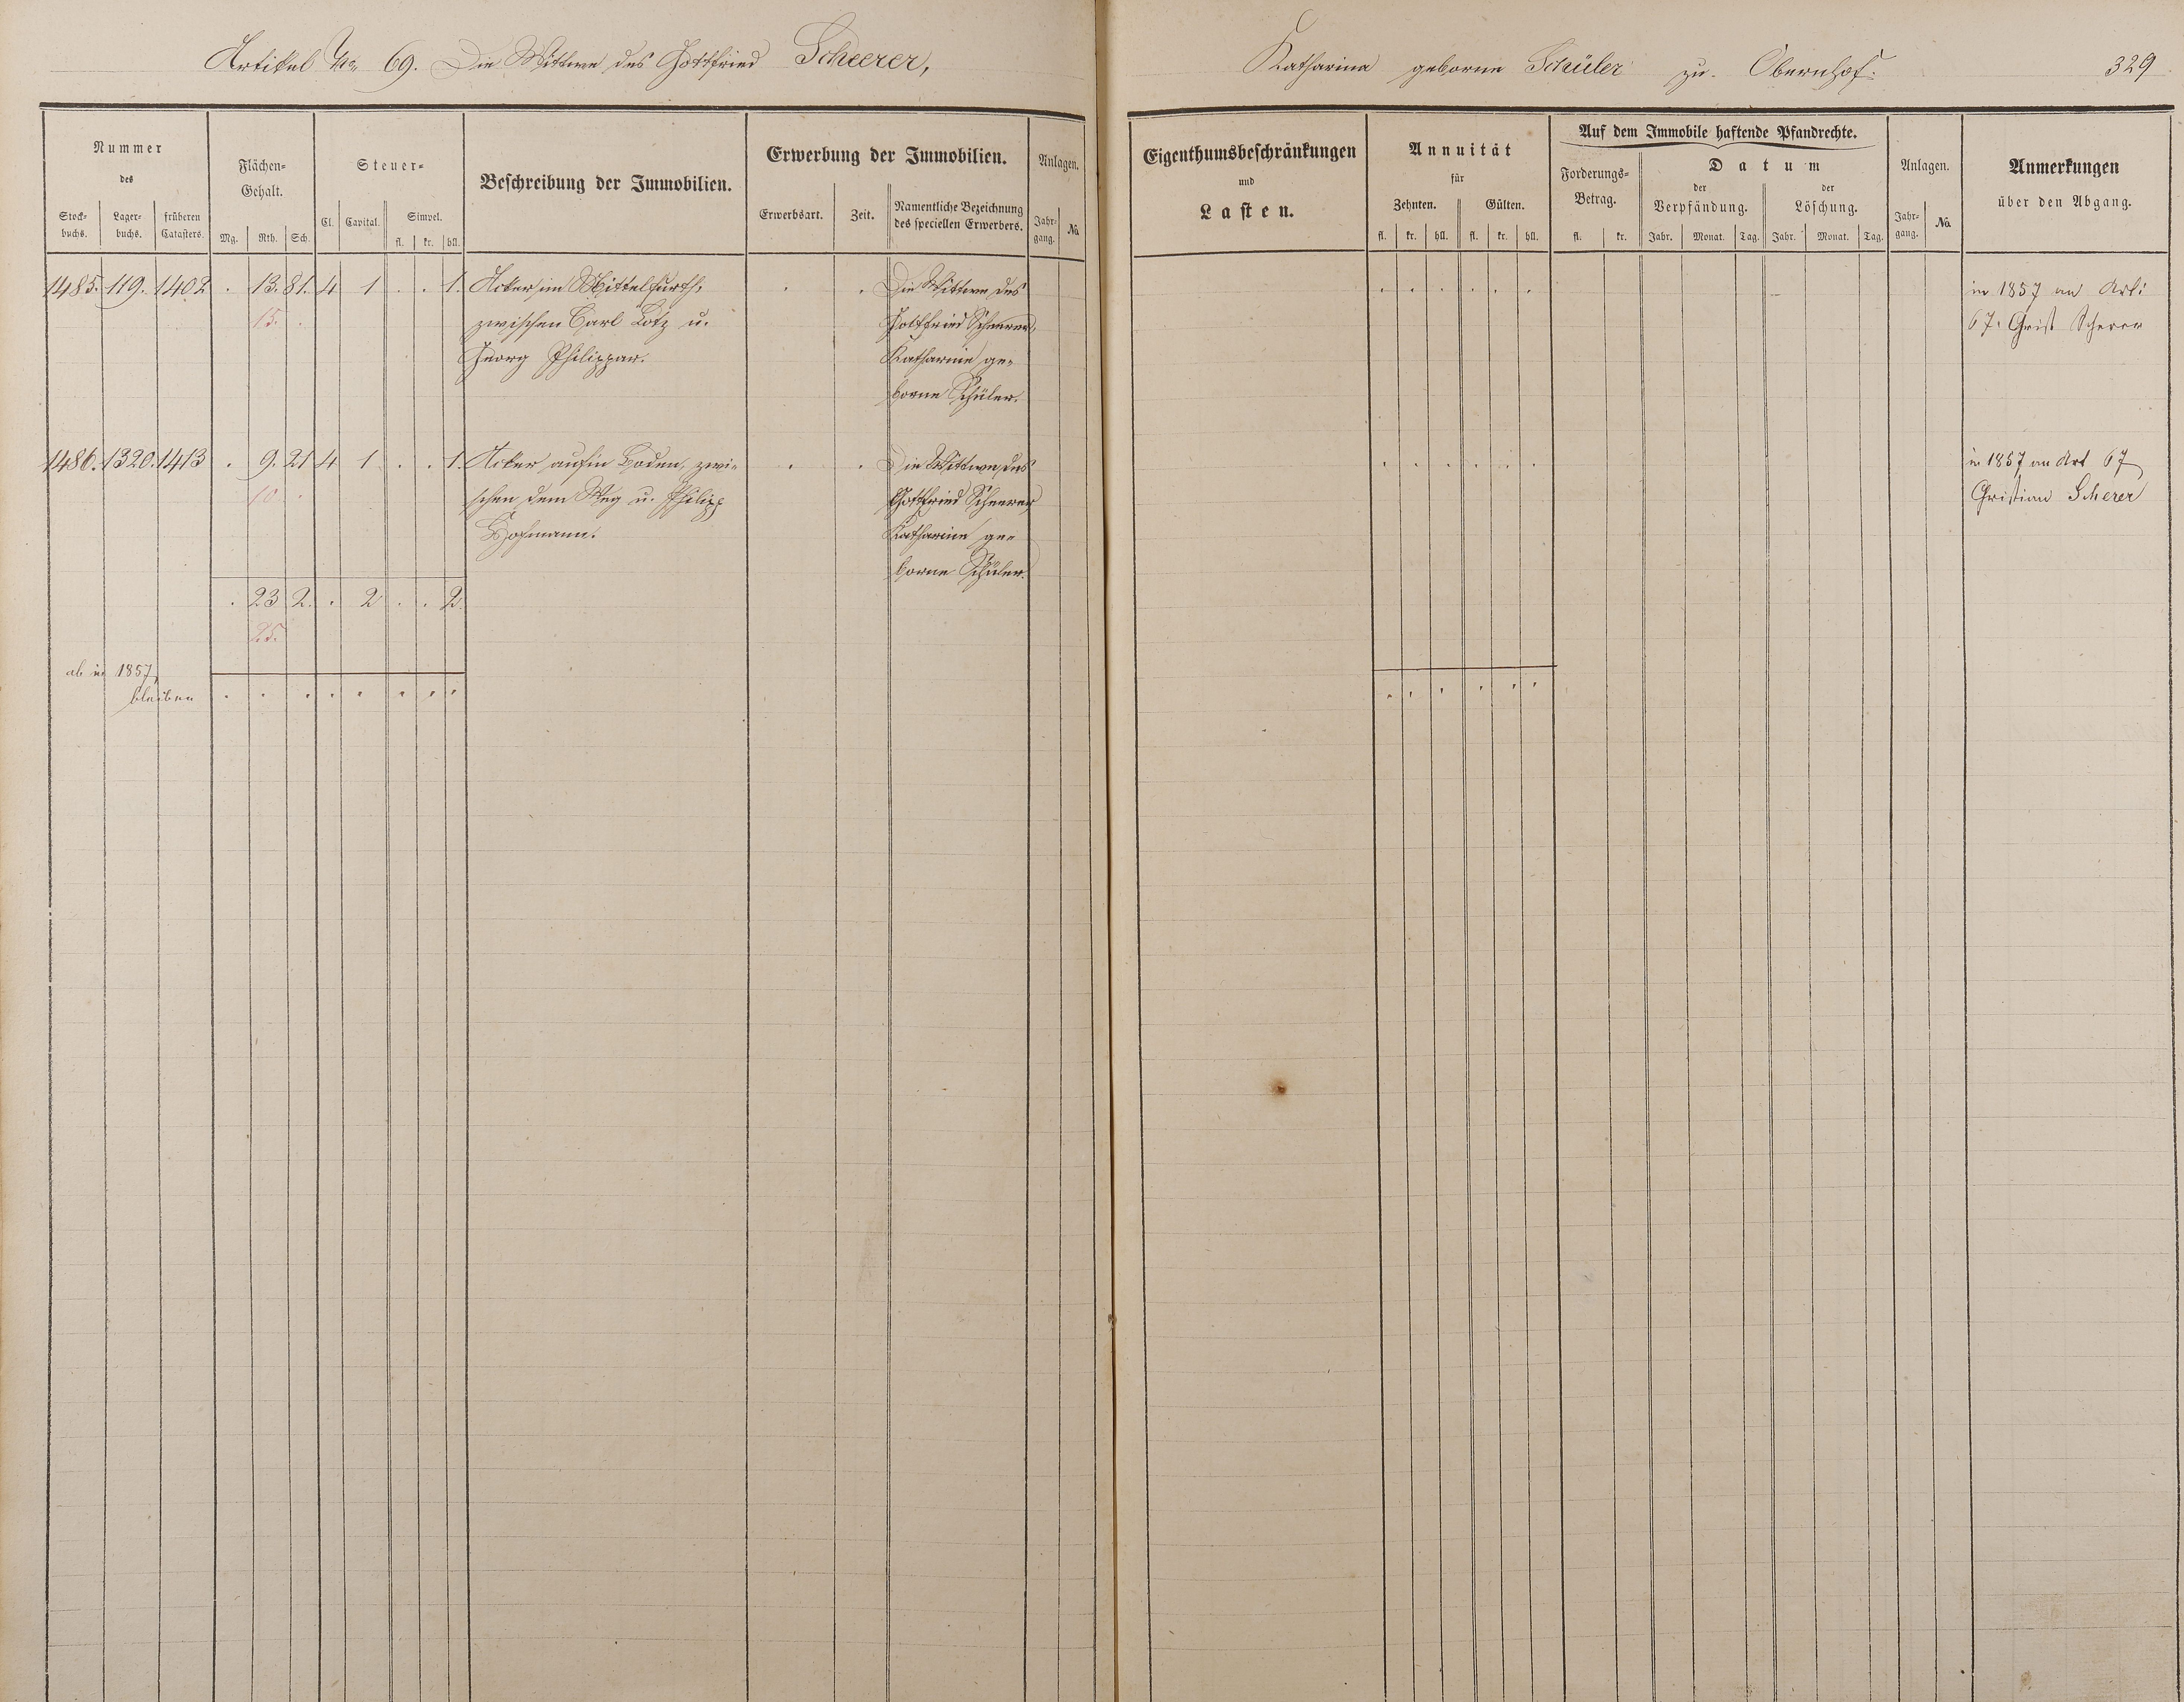 Artikel No 69. Die Wittwe des Gottfried Scheerer,
Katharina geborne Schüler zu Obernhof.
329
Nummer
des
Stock-
buchs.
Lager-
buchs.
früheren
Catasters.
Flächen-
Gehalt.
Mg. Rth. Sch.
Steuer-
Cl. Capital.
Simpel.
fl. kr. hll.
Beschreibung der Immobilien.
Erwerbung der Immobilien.
Erwerbsart. Zeit.
Namentliche Bezeichnung
des speciellen Erwerbers.
Anlagen.
Jahr-
gang.
No
Eigenthumsbeschränkungen
und
Lasten.
Annuität
für
Zehnten. Gülten.
fl. kr. hll. fl. kr. hll.
Auf dem Immobile haftende Pfandrechte.
Forderungs-
Betrag.
fl. kr.
Datum
der
Verpfändung.
der
Löschung.
Jahr. Monat. Tag. Jahr. Monat. Tag.
Anlagen.
Jahr-
gang.
No
Anmerkungen
über den Abgang.
1485. 119. 1402 . 13. 81. 4 1 . . 1. Acker im Mittelfurth, . . Die Wittwe des
15. zwischen Carl Lotz u. Gottfried Scheerer,
Georg Philippar. Katharine ge-
borne Schüler.
in 1857 an Art:
67. Christ Scherer
1486. 1320. 1413 . 9. 21 4 1 . . 1. Acker auf'm Boden, zwi- . . Die Wittwe des
10 . schen dem Weg u. Philipp Gottfried Scheerer
Hofmann. Katharine ge-
borne Schüler.
in 1857 an Art 67
Christian Scherer
. 23 2. . 2 . . 2.
25.
ab in 1857,
bleiben . . . . . . . .